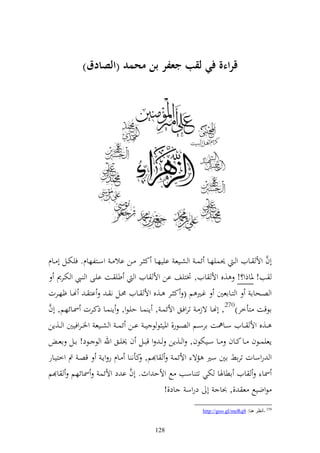 قراءة في لقب جعفر بن محمد (الصادق)
علي أمير المؤمنين
الزهراء
إنَّ الألقاب التي يحملها أئمة الشيعة عليها أكثر من علامة استفهام. فلكل إمام
لقب! لماذا؟! وهذه الألقاب, تختلف عن الألقاب التي أطلقت على النبي الكريم أو
الصحابة أو التابعين أو غيرهم (وأكثر هذه الألقاب محل نقد وأعتقد أنها ظهرت
بوقت متأخر)270, إنها لازمة ترافق الأئمة, أينما حلوا, وأينما ذكرت أسمائهم, إنَّ
هذه الألقاب ساهمت برسم الصورة الميثولوجية عن أئمة الشيعة الخرافيين الذين
يعلمون ما كان وما سيكون, والذين ولدوا قبل أن يخلق الله الوجود! بل وبعض
الدراسات تربط بين سير هؤلاء الأئمة وألقابهم, وكأننا أمام رواية أو قصة تم اختيار
أسماء وألقاب أبطالها لكي تتناسب مع الأحداث. إنَّ عدد الأئمة وأسمائهم وألقابهم
مواضيع معقدة, بحاجة إلى دراسة جادة!
270 -انظر هنا: http://goo.gl/meRq8
128